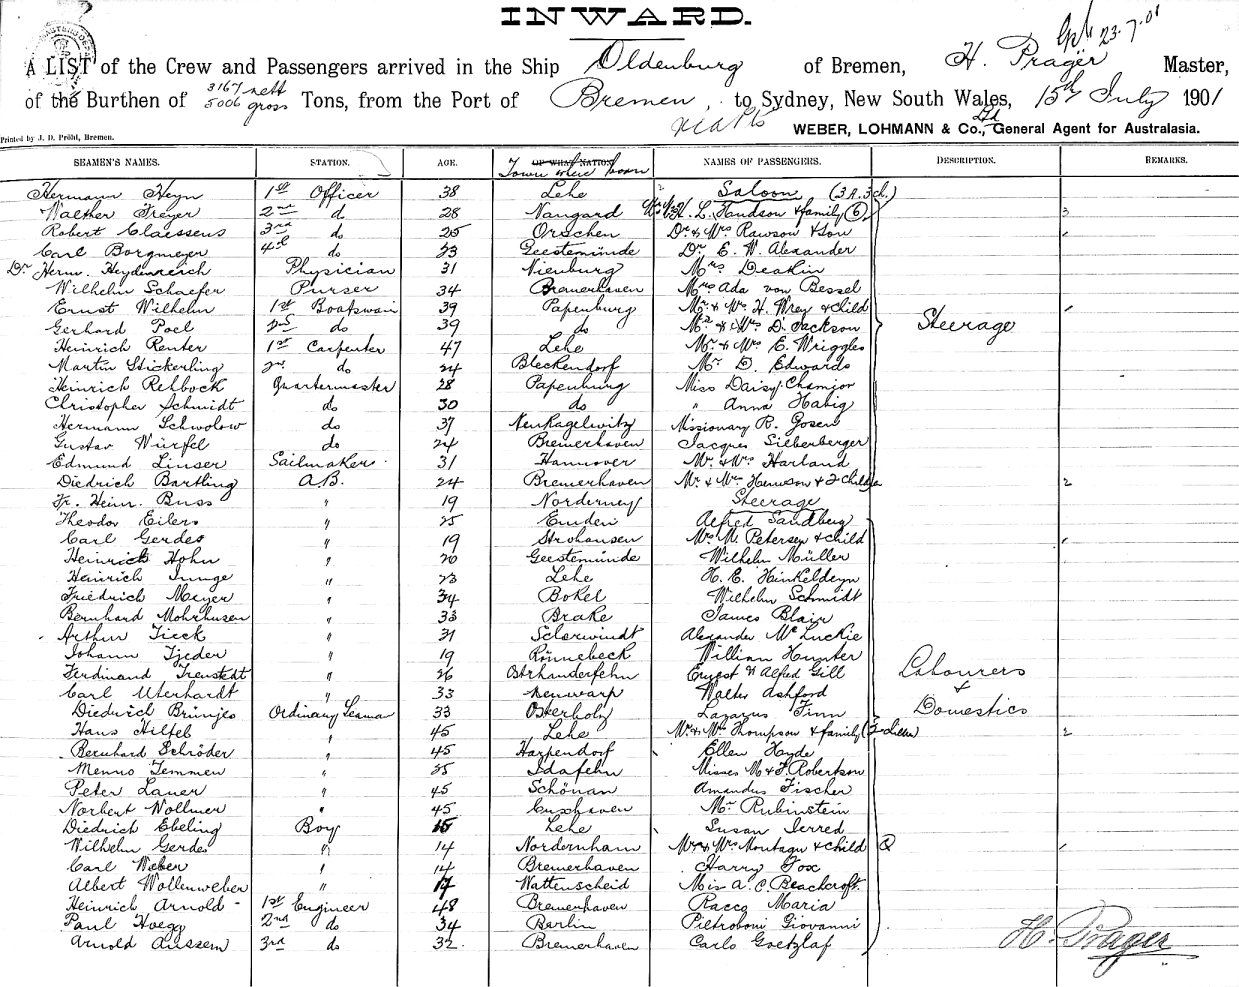 INWARD.
Gph 23.7.01
A LIST of the Crew and Passengers arrived in the Ship Oldenburg of Bremen, H. Prager Master,
of the Burthen of 3167 nett 5006 gross Tons, from the Port of Bremen, to Sydney, New South Wales, 15th July 1901
via Pts
Printed by J. D. Pröhl, Bremen. WEBER, LOHMANN & Co., Ltd General Agent for Australasia.
SEAMEN'S NAMES. STATION. AGE. OF WHAT NATION Town where born NAMES OF PASSENGERS. DESCRIPTION. REMARKS.
Hermann Heyn 1st Officer 38 Lehe Saloon (3 A. 3 ch.)
Walther Freyer 2nd do 28 Naugard L. Handson & family (6) 3
Robert Claessens 3rd do 25 Orschen Dr & Mrs Rawson & Son
Carl Borgmeyer 4th do 23 Geestemünde Dr E. W. Alexander
Dr Herm. Heydenreich Physician 31 Nienburg Mrs Deakin
Wilhelm Schaefer Purser 34 Bremerhaven Mrs Ada von Bessel
Ernst Wilhelm 1st Boatswain 39 Papenburg Mr & Mrs H. Wrey & child
Gerhard Poel 2nd do 39 do Mr & Mrs D. Jackson Steerage
Heinrich Renter 1st Carpenter 47 Lehe Mr & Mrs E. Wriggles
Martin Stickerling 2nd do 24 Bleckendorf Mr D. Edwards
Heinrich Rebbock Quartermaster 28 Papenburg Miss Daisy Champion
Christopher Schmidt do 30 do " Anna Habig
Hermann Schwolow do 37 Neu Ragelwitz Missionary R. Gosen
Gustav Würfel do 24 Bremerhaven Jacques Sieberberger
Edmund Linser Sailmaker 31 Hannover Mr & Mrs Harland
Diedrich Bartling A.B. 24 Bremerhaven Mr & Mrs Hewson & 2 children 2
Fr. Heinr. Buss " 19 Norderney Steerage
Theodor Eilers " 25 Emden Alfred Sandberg
Carl Gerdes " 19 Strohausen Mrs M. Petersen & child
Heinrich Hohn " 20 Geestemünde Wilhelm Müller
Heinrich Junge " 23 Lehe H. E. Heinkeldeyn
Friedrich Meyer " 34 Bokel Wilhelm Schmidt
Bernhard Mohrhusen " 33 Brake James Blair
Arthur Tieck " 31 Alexander McLuckie
Johann Tjeder " 19 Rönnebeck William Hunter
Ferdinand Trenstedt " 26 Ostrhauderfehn Ernest & Alfred Gill Labourers
Carl Uterhardt " 33 Neuwarp Walter Ashford &
Diedrich Brünjes Ordinary Seaman 33 Osterholz Lazarus Finn Domestics
Hans Hilfeb " 45 Lehe Mr & Mrs Thompson & family (2 children) 2
Bernhard Schröder " 45 Harpendorf Ellen Hayde
Menno Temmen " 25 Idafehn Misses M & F. Robertson
Peter Lauer " 45 Schönau Amandus Fischer
Norbert Wollmer " 45 Cuxhaven Mr Rubinstein
Diedrich Ebeling Boy 15 Lehe Susan Jerred
Wilhelm Gerdes " 14 Nordernham Mr & Mrs Montagu & child
Carl Weber " 14 Bremerhaven Harry Fox
Albert Wollenweber " 17 Wattenscheid Miss A. C. Beachcroft
Heinrich Arnold 1st Engineer 48 Bremerhaven Racco Maria
Paul Hoegg 2nd do 34 Berlin Pietroboni Giovanni
Arnold Aussem 3rd do 32 Bremerhaven Carlo Goetzlaf
H. Prager